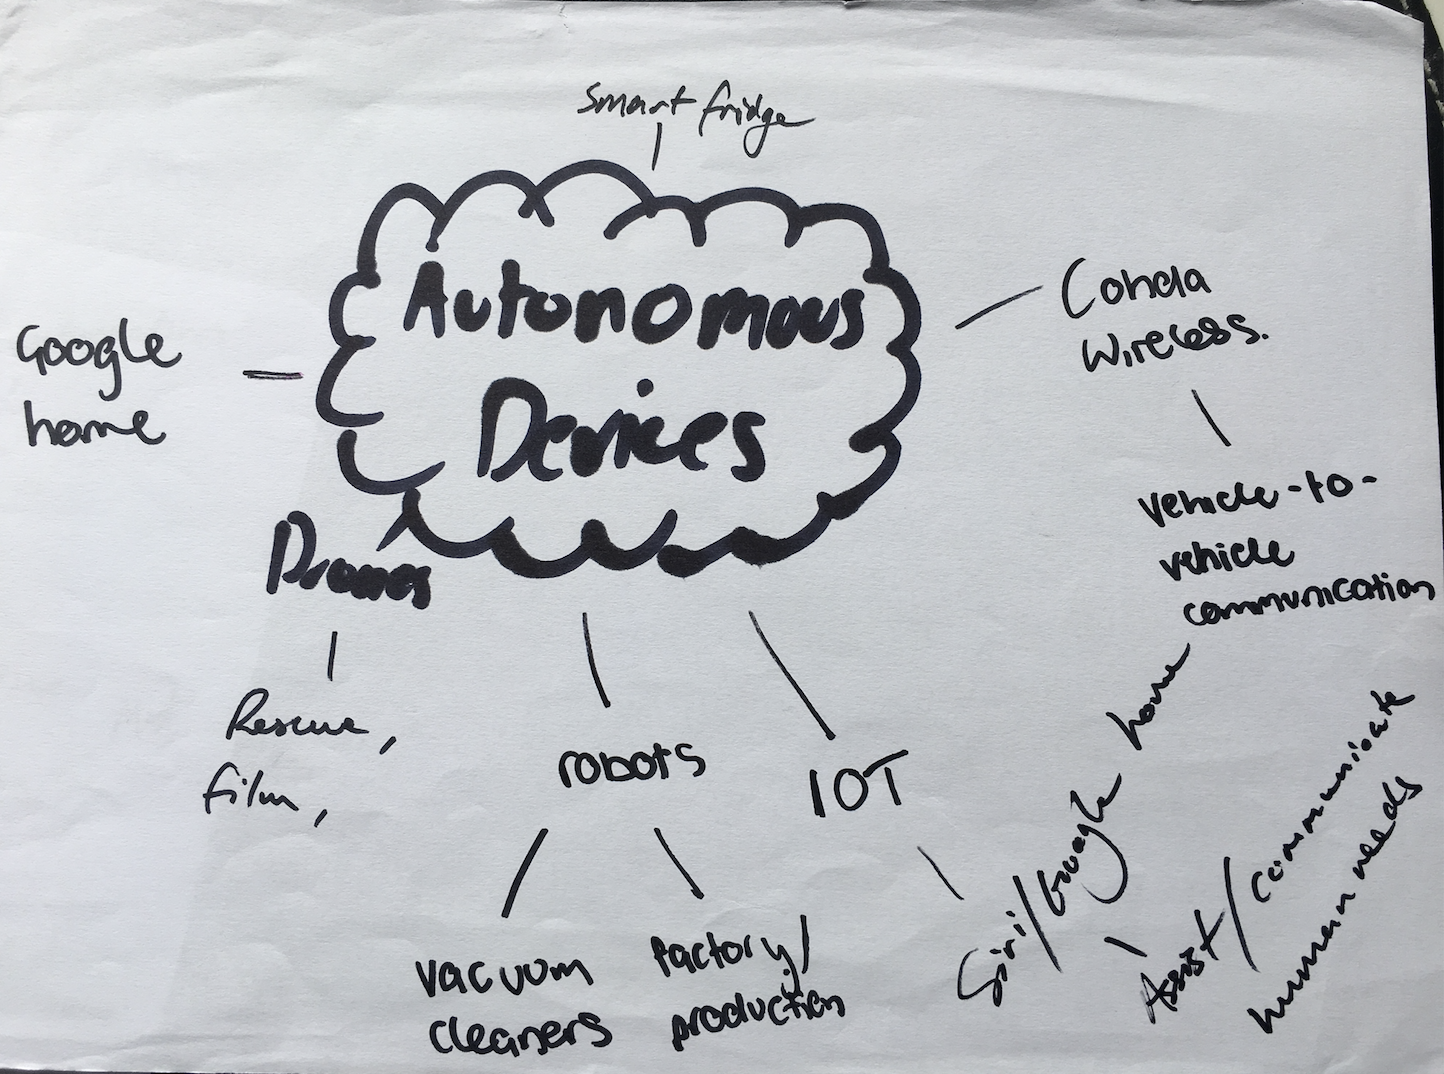 Smart fridge
Autonomous
Devices
Google
home
Cohda
Wireless.
vehicle-to-
vehicle
communication
Drones
Rescue,
film,
robots
IOT
vacuum
cleaners
factory/
production
Siri/Google home
Assist/communicate
human needs